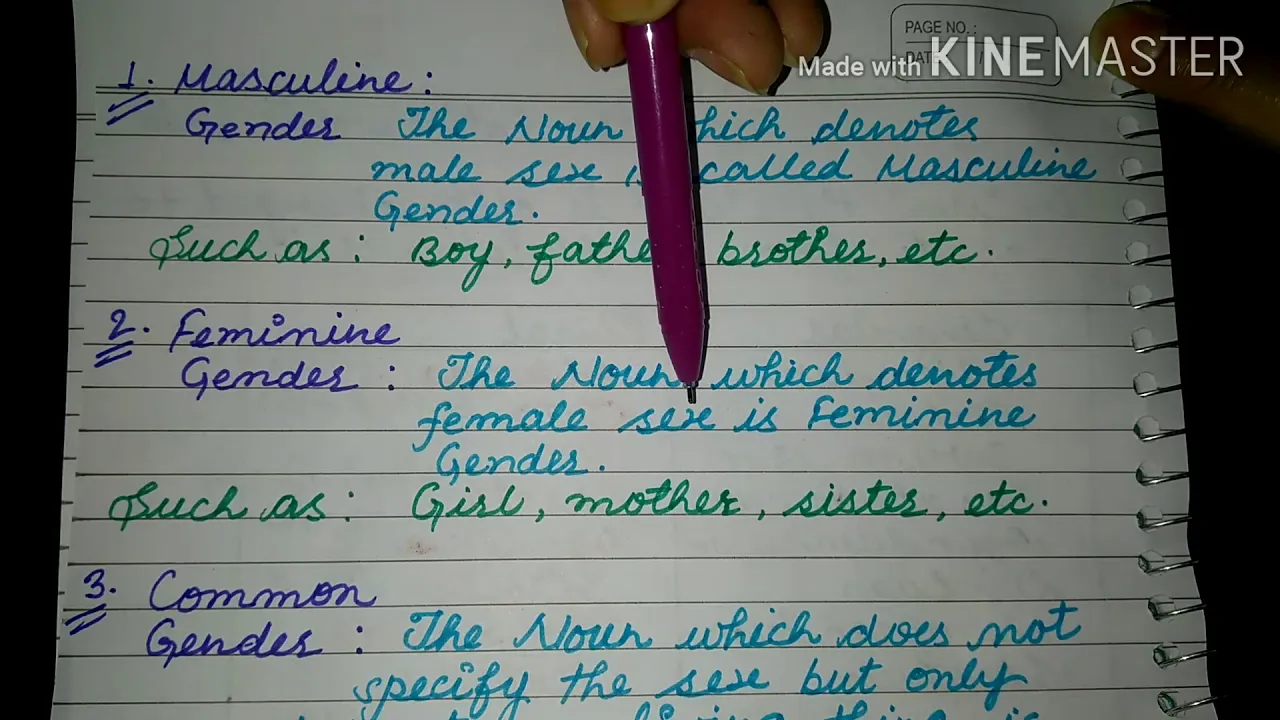 PAGE NO.:
DAT
Made with KINEMASTER
1. Masculine:
Gender The Noun which denotes
male sex is called Masculine
Gender.
Such as: Boy, father brother, etc.
2. Feminine
Gender: The Noun which denotes
female sex is Feminine
Gender.
Such as: Girl, mother, sister, etc.
3. Common
Gender: The Noun which does not
specify the sex but only
living thing is